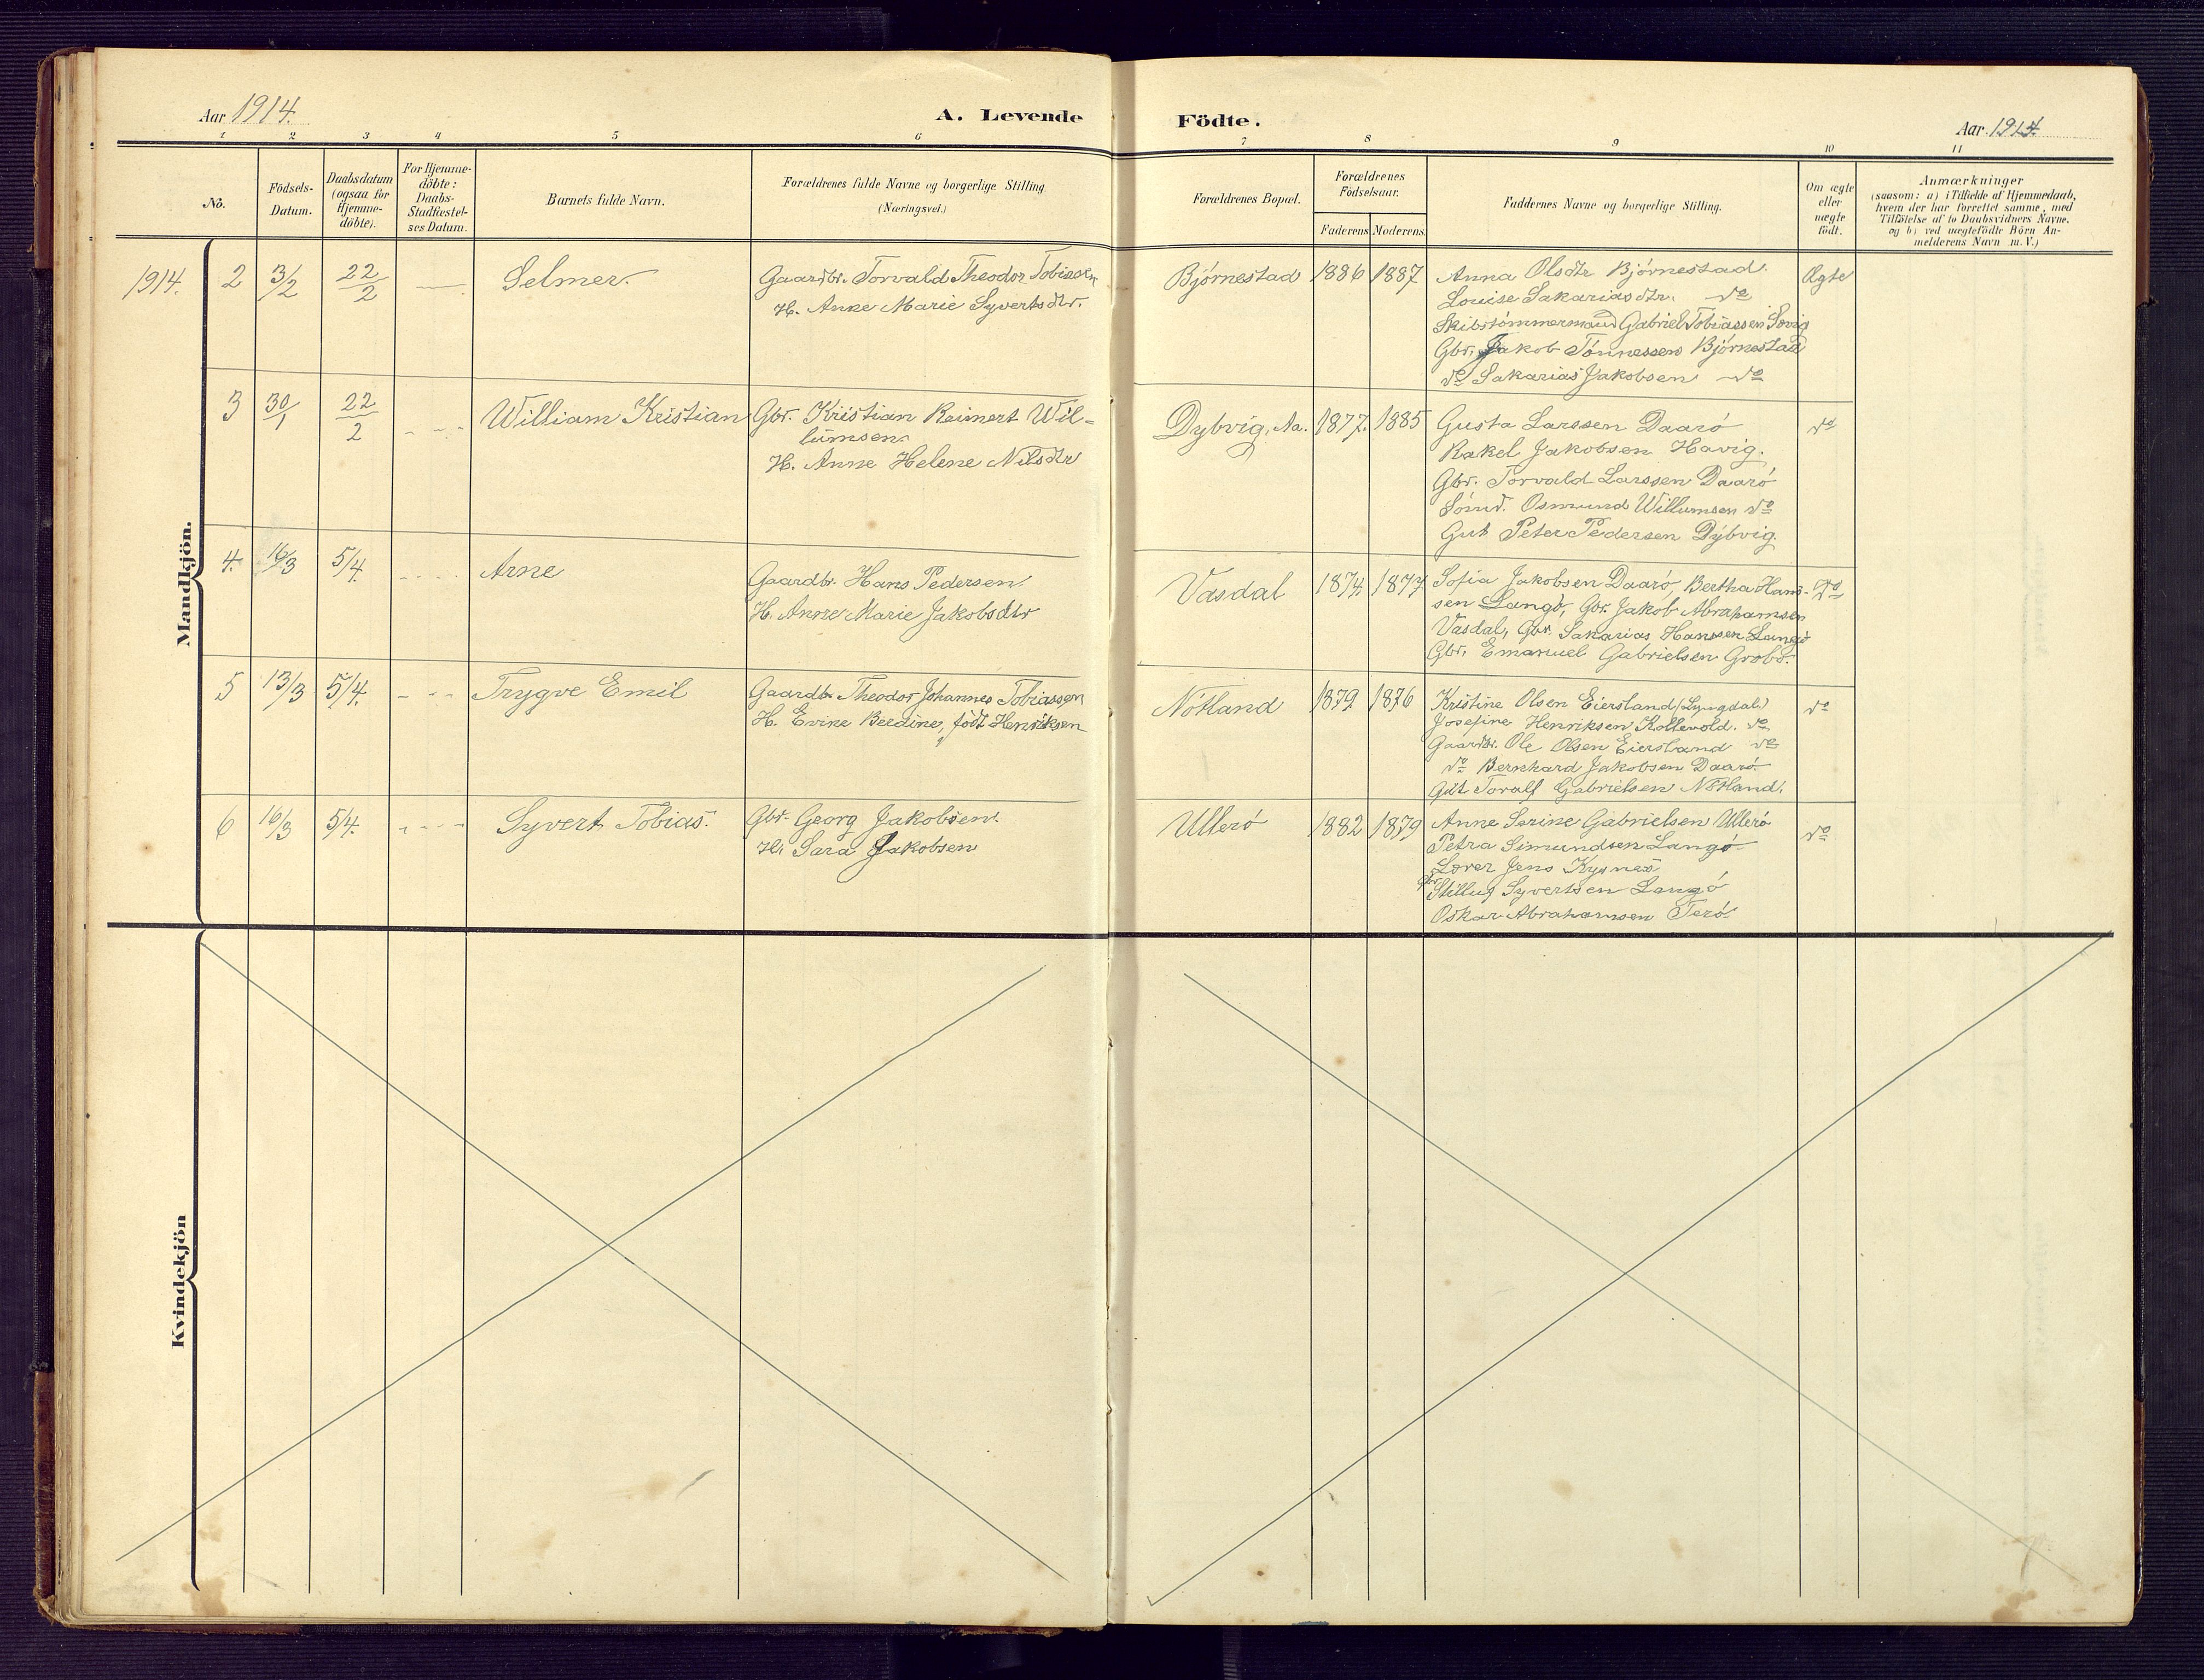 Aar 1914.
A. Levende Födte.
Aar 1914
1 2 3 4 5 6 7 8 9 10 11
No.
Födsels-
Datum.
Daabsdatum
(ogsaa for
Hjemme-
döbte).
For Hjemme-
döbte:
Daabs-
Stadfæstel-
ses Datum.
Barnets fulde Navn.
Forældrenes fulde Navne og borgerlige Stilling.
(Næringsvei.)
Forældrenes Bopæl.
Forældrenes
Födselsaar.
Faderens Moderens.
Faddernes Navne og borgerlige Stilling.
Om ægte
eller
uægte
födt.
Anmærkninger
(saasom: a) i Tilfælde af Hjemmedaab,
hvem der har forrettet samme, med
Tilföielse af to Daabsvidners Navne,
og b) ved uægtefödte Börn An-
melderens Navn m. V.)
Mandkjön.
1914. 2 3/2 22/2 Selmer.
Gaardbr. Torvald Theodor Tobiassen
H. Anne Marie Syvertsdtr.
Bjørnestad 1886 1887
Anna Olsdtr Bjørnestad.
Louise Sakariasdtr. do
Skibstømmermand Gabriel Tobiassen
Gbr. Jakob Tønnessen Bjørnestad
do Sakarias Jakobsen do
Ægte
3 30/1 22/2 William Kristian
Gbr. Kristian Reimert Wil-
lumsen.
H. Anne Helene Nilsdtr
Dybvig, Na. 1877. 1885
Gusta Larssen Daarø
Rakel Jakobsen Havig.
Gbr. Torvald Larssen Daarø
Sømd. Osmund Willumsen do
Gut Peter Pedersen Dybvig.
do
4. 16/3 5/4. Arne
Gaardbr. Hans Pedersen.
H. Anne Marie Jakobsdtr
Vasdal 1874 1877
Sofia Jakobsen Daarø, Bertha Han-
sen Langø, Gbr. Jakob Abrahamsen
Vasdal, Gbr. Sakarias Hanssen Langø
Gbr. Emanuel Gabrielsen
Do
5 13/3 5/4. Trygve Emil
Gaardb. Theodor Johannes Tobiassen
H. Evine Berdine, født Henriksen
Nøtland 1879 1876
Kristine Olsen Eiersland (Lyngdal)
Josefine Henriksen Kollevold. do
Gaardbr. Ole Olsen Eiersland do
do Bernhard Jakobsen Daarø.
Gut Toralf Gabrielsen Nøtland.
do
6 16/3 5/4. Syvert Tobias.
Gbr. Georg Jakobsen.
H. Sara Jakobsen
Ullerø 1882 1879
Anne Serine Gabrielsen Ullerø
Petra Simundsen Langø
Jens
Gbr. Syvertsen Langø
Oskar Abrahamsen Terø.
do
Kvindekjön